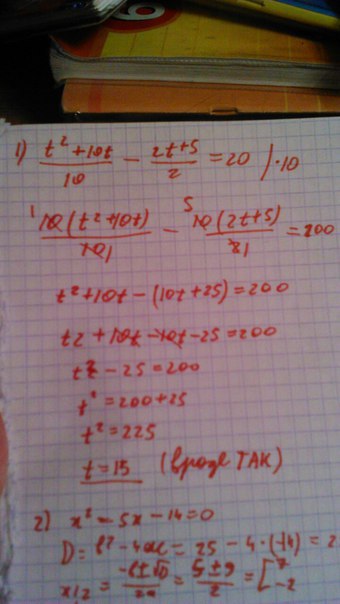 9
1) t² + 10t / 10 − 2t+5 / 2 = 20 / ·10
1 10(t²+10t) / 10 1 − 5 10(2t+5) / 2 1 = 200
t² + 10t − (10t + 25) = 200
t2 + 10t − 10t − 25 = 200
t² − 25 = 200
t² = 200 + 25
t² = 225
t = 15 (вроде ТАК)
2) x² − 5x − 14 = 0
D = b² − 4ac = 25 − 4·(−14) = 2
x1/2 = −b±√D / 2a = 5±9 / 2 = [ 7 −2